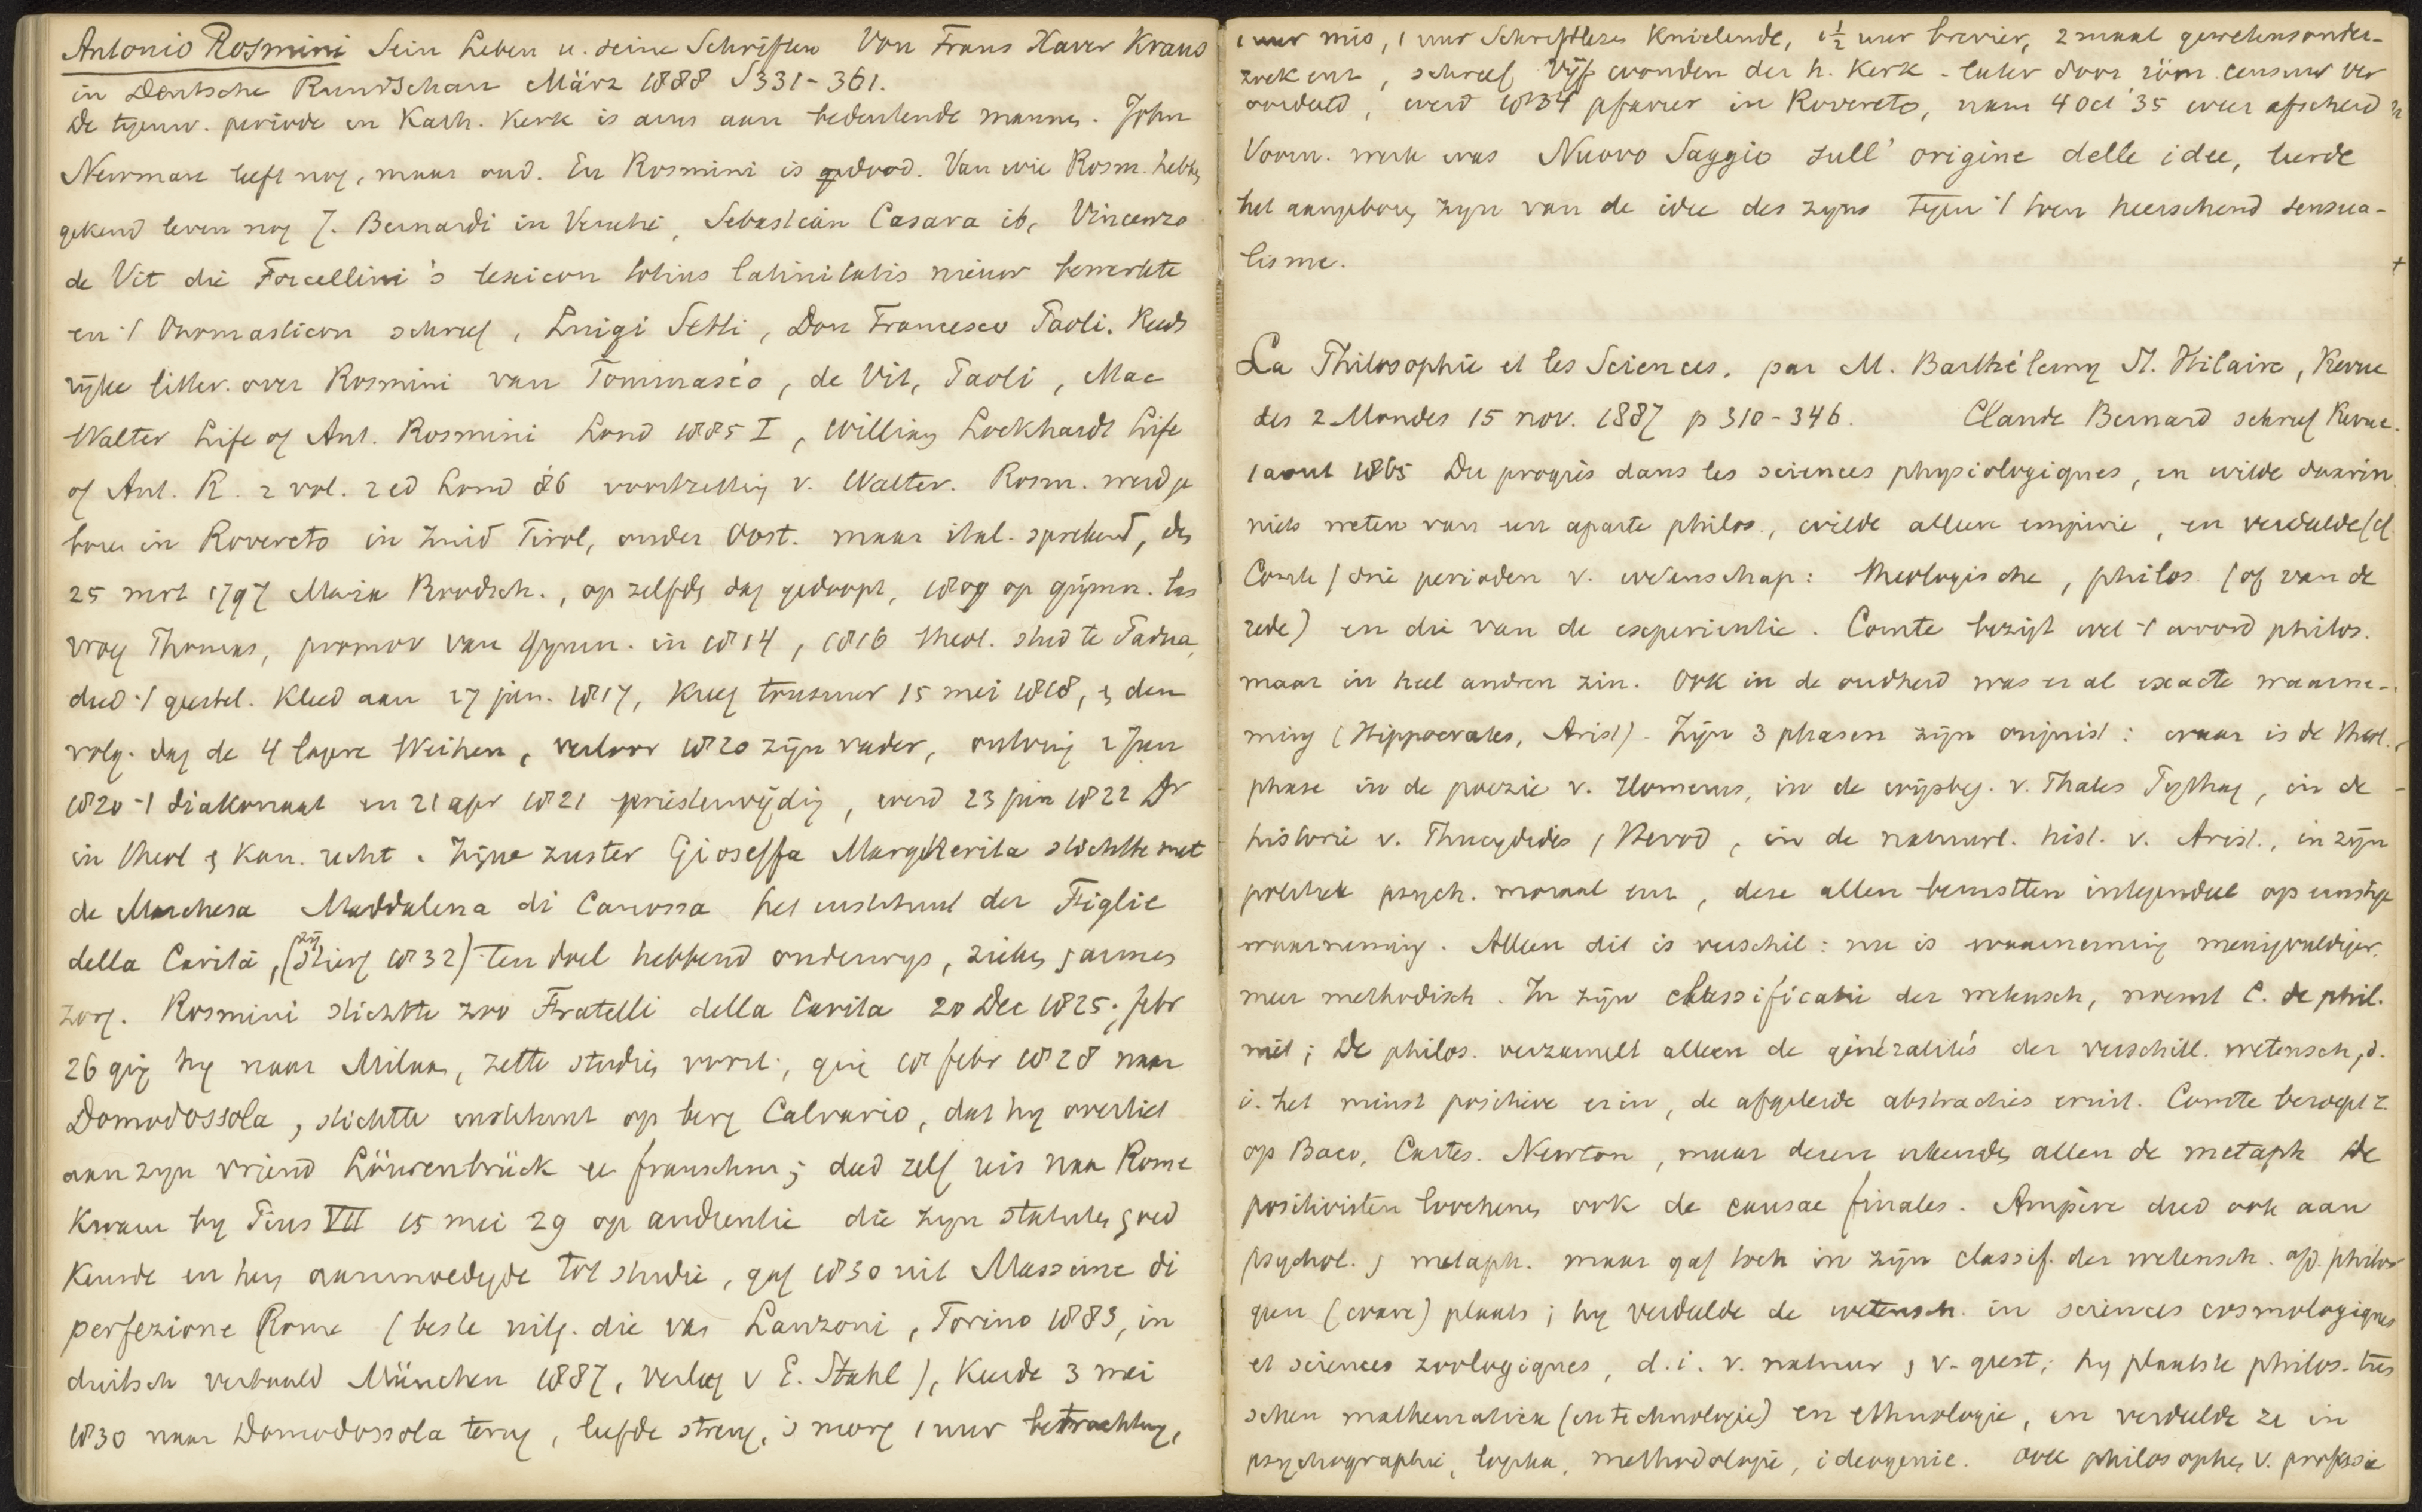 Antonio Rosmini Sein Leben u. seine Schriften Von Frans Xaver Kraus
in Deutsche Rundschau März 1888 S 331-361.
De tegenw. periode in Kath. Kerk is arm aan beduidende mannen. John
Newman leeft nog, maar oud. En Rosmini is gedood. Van wie Rosm. hebben
gekend leven nog J. Bernardi in Venetië, Sebastian Casara ib, Vincenzo
de Vit die Forcellini's lexicon totius latinitatis nieuw bewerkte
en 't Onomasticon schreef, Luigi Setti, Don Francesco Paoli. Reeds
rijke litter. over Rosmini van Tommaséo, de Vit, Paoli, Mac
Walter Life of Ant. Rosmini Lond 1885 I, William Lockhardt Life
of Ant. R. 2 vol. 2 ed Lond 86 voortzetting v. Walter. Rosm. werd ge
boren in Rovereto in Zuid Tirol, onder Oost. maar ital. sprekend, den
25 mrt 1797 Maria Boodsch., op zelfde dag gedoopt, 1809 op gymn. las
vroeg Thomas, promov van gymn. in 1814, 1816 theol. stud te Padua,
deed 't geestel. kleed aan 17 jan. 1817, kreeg tonsuur 15 mei 1818, & den
volg. dag de 4 lagere Weihen, verloor 1820 zijn vader, ontving 2 Jun
1820 't diakonaat en 21 apr 1821 priesterwijding, werd 23 jun 1822 Dr
in theol & kan. recht. Zijne zuster Gioseffa Margherita stichtte met
de Marchesa Maddalena di Canossa het instituut der Figlie
della Carità, (zij stierf 1832) ten doel hebbend onderwijs, zieken & armen
zorg. Rosmini stichtte zoo Fratelli della Carita 20 Dec 1825; febr
26 ging hij naar Milaan, zette studien voort; ging 18 febr 1828 naar
Domodossola, stichtte instituut op berg Calvario, dat hij overliet
aan zijn vriend Löwenbrück een franschm; deed zelf reis naar Rome
kwam bij Pius VII 15 mei 29 op audientie die zijn statuten goed
keurde en hem aanmoedigde tot studie, gaf 1830 uit Massime di
perfezione Rome (beste uitg. die van Lanzoni, Torino 1883, in
duitsch vertaald München 1887, verlag v E. Stahl), keerde 3 mei
1830 naar Domodossola terug, leefde streng, 's morg 1 uur betrachting,
1 uur mis, 1 uur Schriftlezen knielende, 1½ uur brevier, 2 maal gewetensonder-
zoek enz, schreef Vijf wonden der h. Kerk - later door röm. censuur ver
oordeeld, werd 1834 pfarrer in Rovereto, nam 4 Oct '35 weer afscheid
Voorn. werk was Nuovo Saggio sull' origine delle idee, leerde
het aangeboren zijn van de idee des zijns tegen 't toen heerschend sensua-
lisme.
La Philosophie et les Sciences, par M. Barthélemy St. Hilaire, Revue
des 2 Mondes 15 nov. 1887 p 310-346. Claude Bernard schreef Revue.
1 aout 1865 Du progrès dans les sciences physiologiques, en wilde daarin
niets weten van een aparte philos., wilde alleen empirie, en verdeelde (cf
Comte) drie perioden v. wetenschap: theologische, philos. (of van de
rede) en die van de experientie. Comte bezigt wel 't woord philos.
maar in heel andren zin. Ook in de oudheid was er al exacte waarne-
ming (Hippocrates, Arist). Zijn 3 phasen zijn onjuist: waar is de theol.
phase in de poezie v. Homerus, in de wijsbeg. v. Thales Pythag, in de
historie v. Thucydides, Herod, in de natuurl. hist. v. Arist., in zijn
politiek psych. moraal enz, deze allen berustten integendeel op ernstige
waarneming. Alleen dit is verschil: nu is waarneming menigvuldiger,
meer methodisch. In zijn classificatie der wetensch, noemt C. de phil.
niet; De philos. verzamelt alleen de généralités der verschill. wetensch, d.
i. het minst positieve erin, de afgeleide abstracties eruit. Comte beroept z.
op Baco, Cartes. Newton, maar dezen erkenden allen de metaph. De
positivisten loochenen ook de causae finales. Ampère deed ook aan
psychol. & metaph. maar gaf toch in zijn classif. der wetensch. op. philos
geen (ware) plaats; hij verdeelde de wetensch. in sciences cosmologiques
et sciences zoologiques, d.i. v. natuur & v. geest; hij plaatste philos. tus
schen mathematica (en technologie) en ethnologie, en verdeelde ze in
psychographie, logika, methodologie, ideogenie. Ook philosophen v. professie